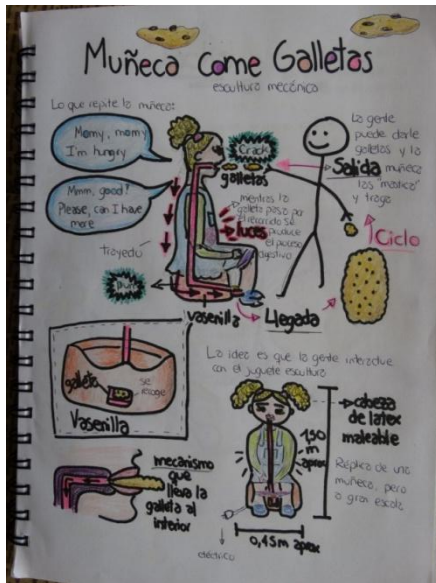 Muñeca Come Galletas
escultura mecánica
Lo que repite la muñeca:
Momy, momy
I'm hungry
Mmm, good?
Please, can I have
more
Crack
galletas
La gente
puede darle
galletas y la
Salida muñeca
las "mastica"
y traga
mientras la
galleta pasa por
el recorrido se
luces produce
el proceso
digestivo
Ciclo
trayecto
Vasenilla
Llegada
galleta
se
recoge
Vasenilla
La idea es que la gente interactue
con el juguete escultura
cabeza
de latex
maleable
1,50
m
aprox
Réplica de una
muñeca, pero
a gran escala
mecanismo
que
lleva la
galleta al
interior
0,45m aprox
eléctrico